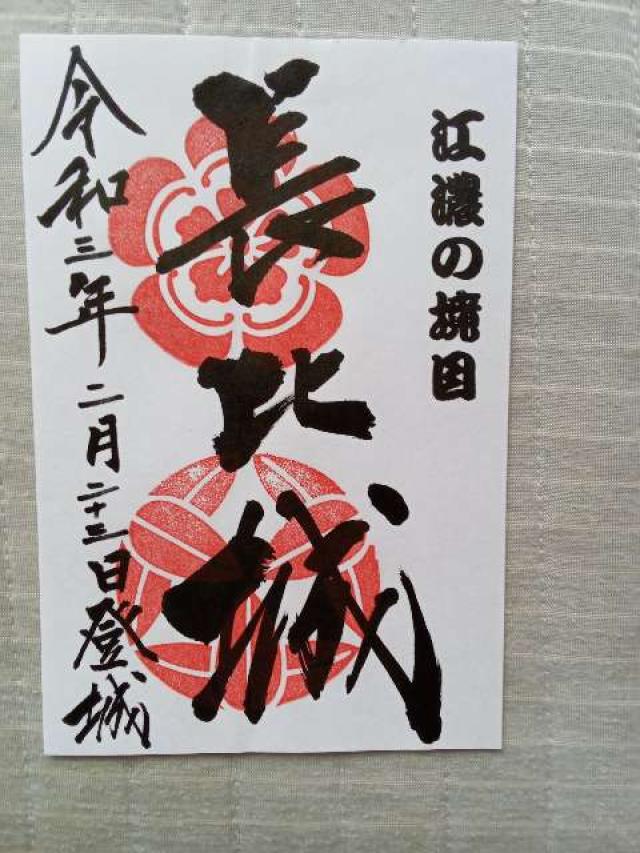 江濃の境目
長比城
令和三年二月二十三日登城